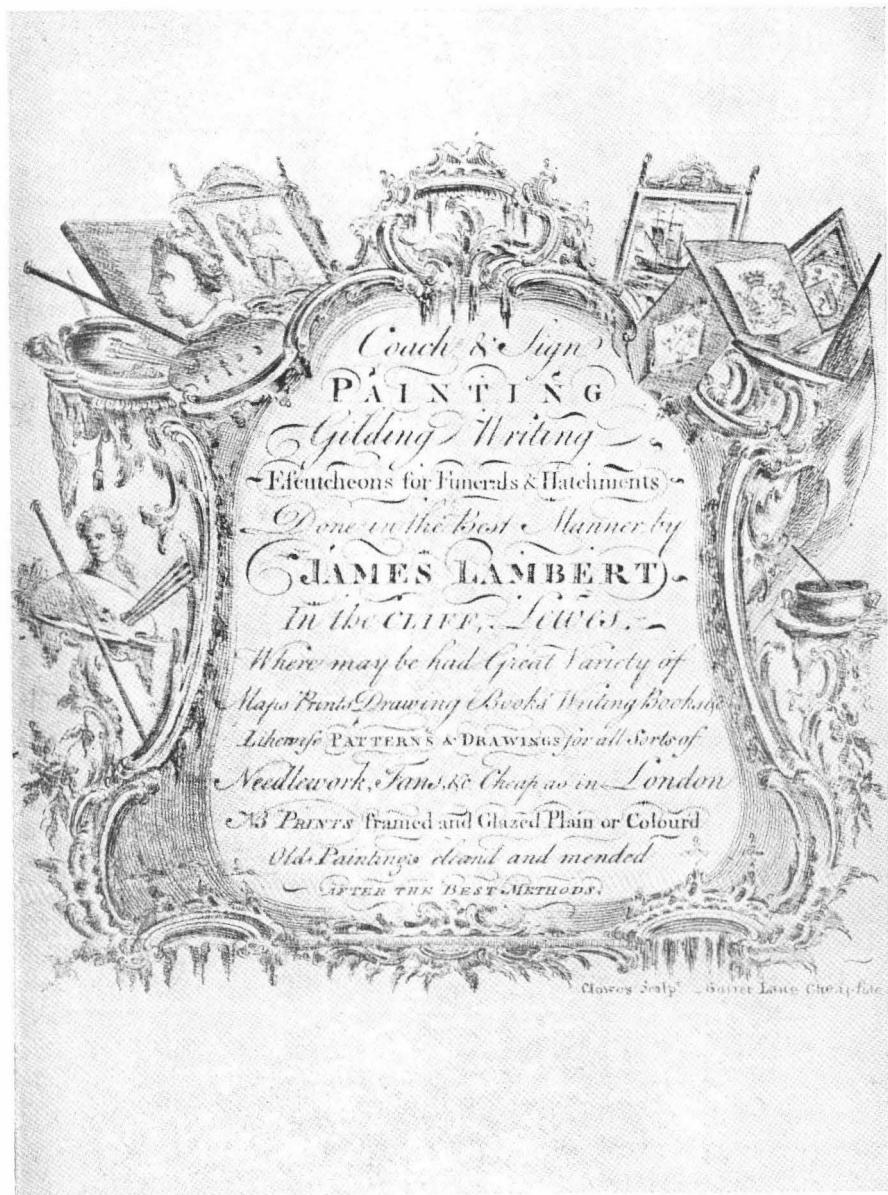 Coach & Sign
PAINTING
Gilding Writing
Eſcutcheons for Funerals & Hatchments
Done in the Best Manner by
JAMES LAMBERT
In the CLIFF, Lewes.
Where may be had Great Variety of
Maps Prints Drawing Books Writing Books &c
Likewiſe PATTERNS & DRAWINGS for all Sorts of
Needlework, Fans &c Cheap as in London
NB PRINTS framed and Glazed Plain or Colourd
Old Paintings cleand and mended
AFTER THE BEST METHODS.
Clowes Sculpt. Gutter Lane Cheapſide